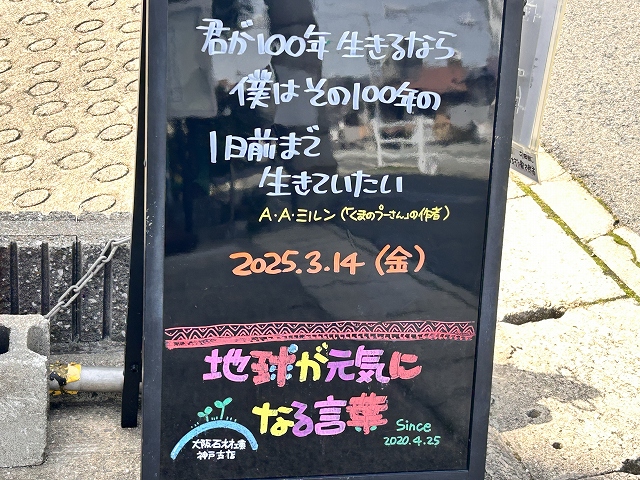 君が100年生きるなら
僕はその100年の
1日前まで
生きていたい
A・A・ミルン(「くまのプーさん」の作者)
2025.3.14(金)
地球が元気に
なる言葉
Since
2020.4.25
大阪石材工業
神戸店